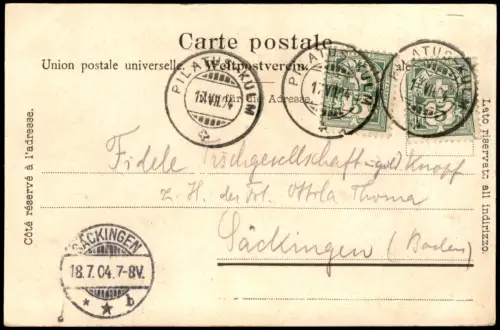 Carte postale.
Union postale universelle. Weltpostverein.
für die Adresse.
PILATUS-KULM
17.VII.04
PILATUS-KULM
17.VII.04
PILATUS-KULM
Côté réservé à l'adresse.
Lato riservato all indirizzo.
Fidele
Knopf
z. H. des Frl. Ottila Thoma
Säckingen (Baden)
SÄCKINGEN
18.7.04.7-8V.
b